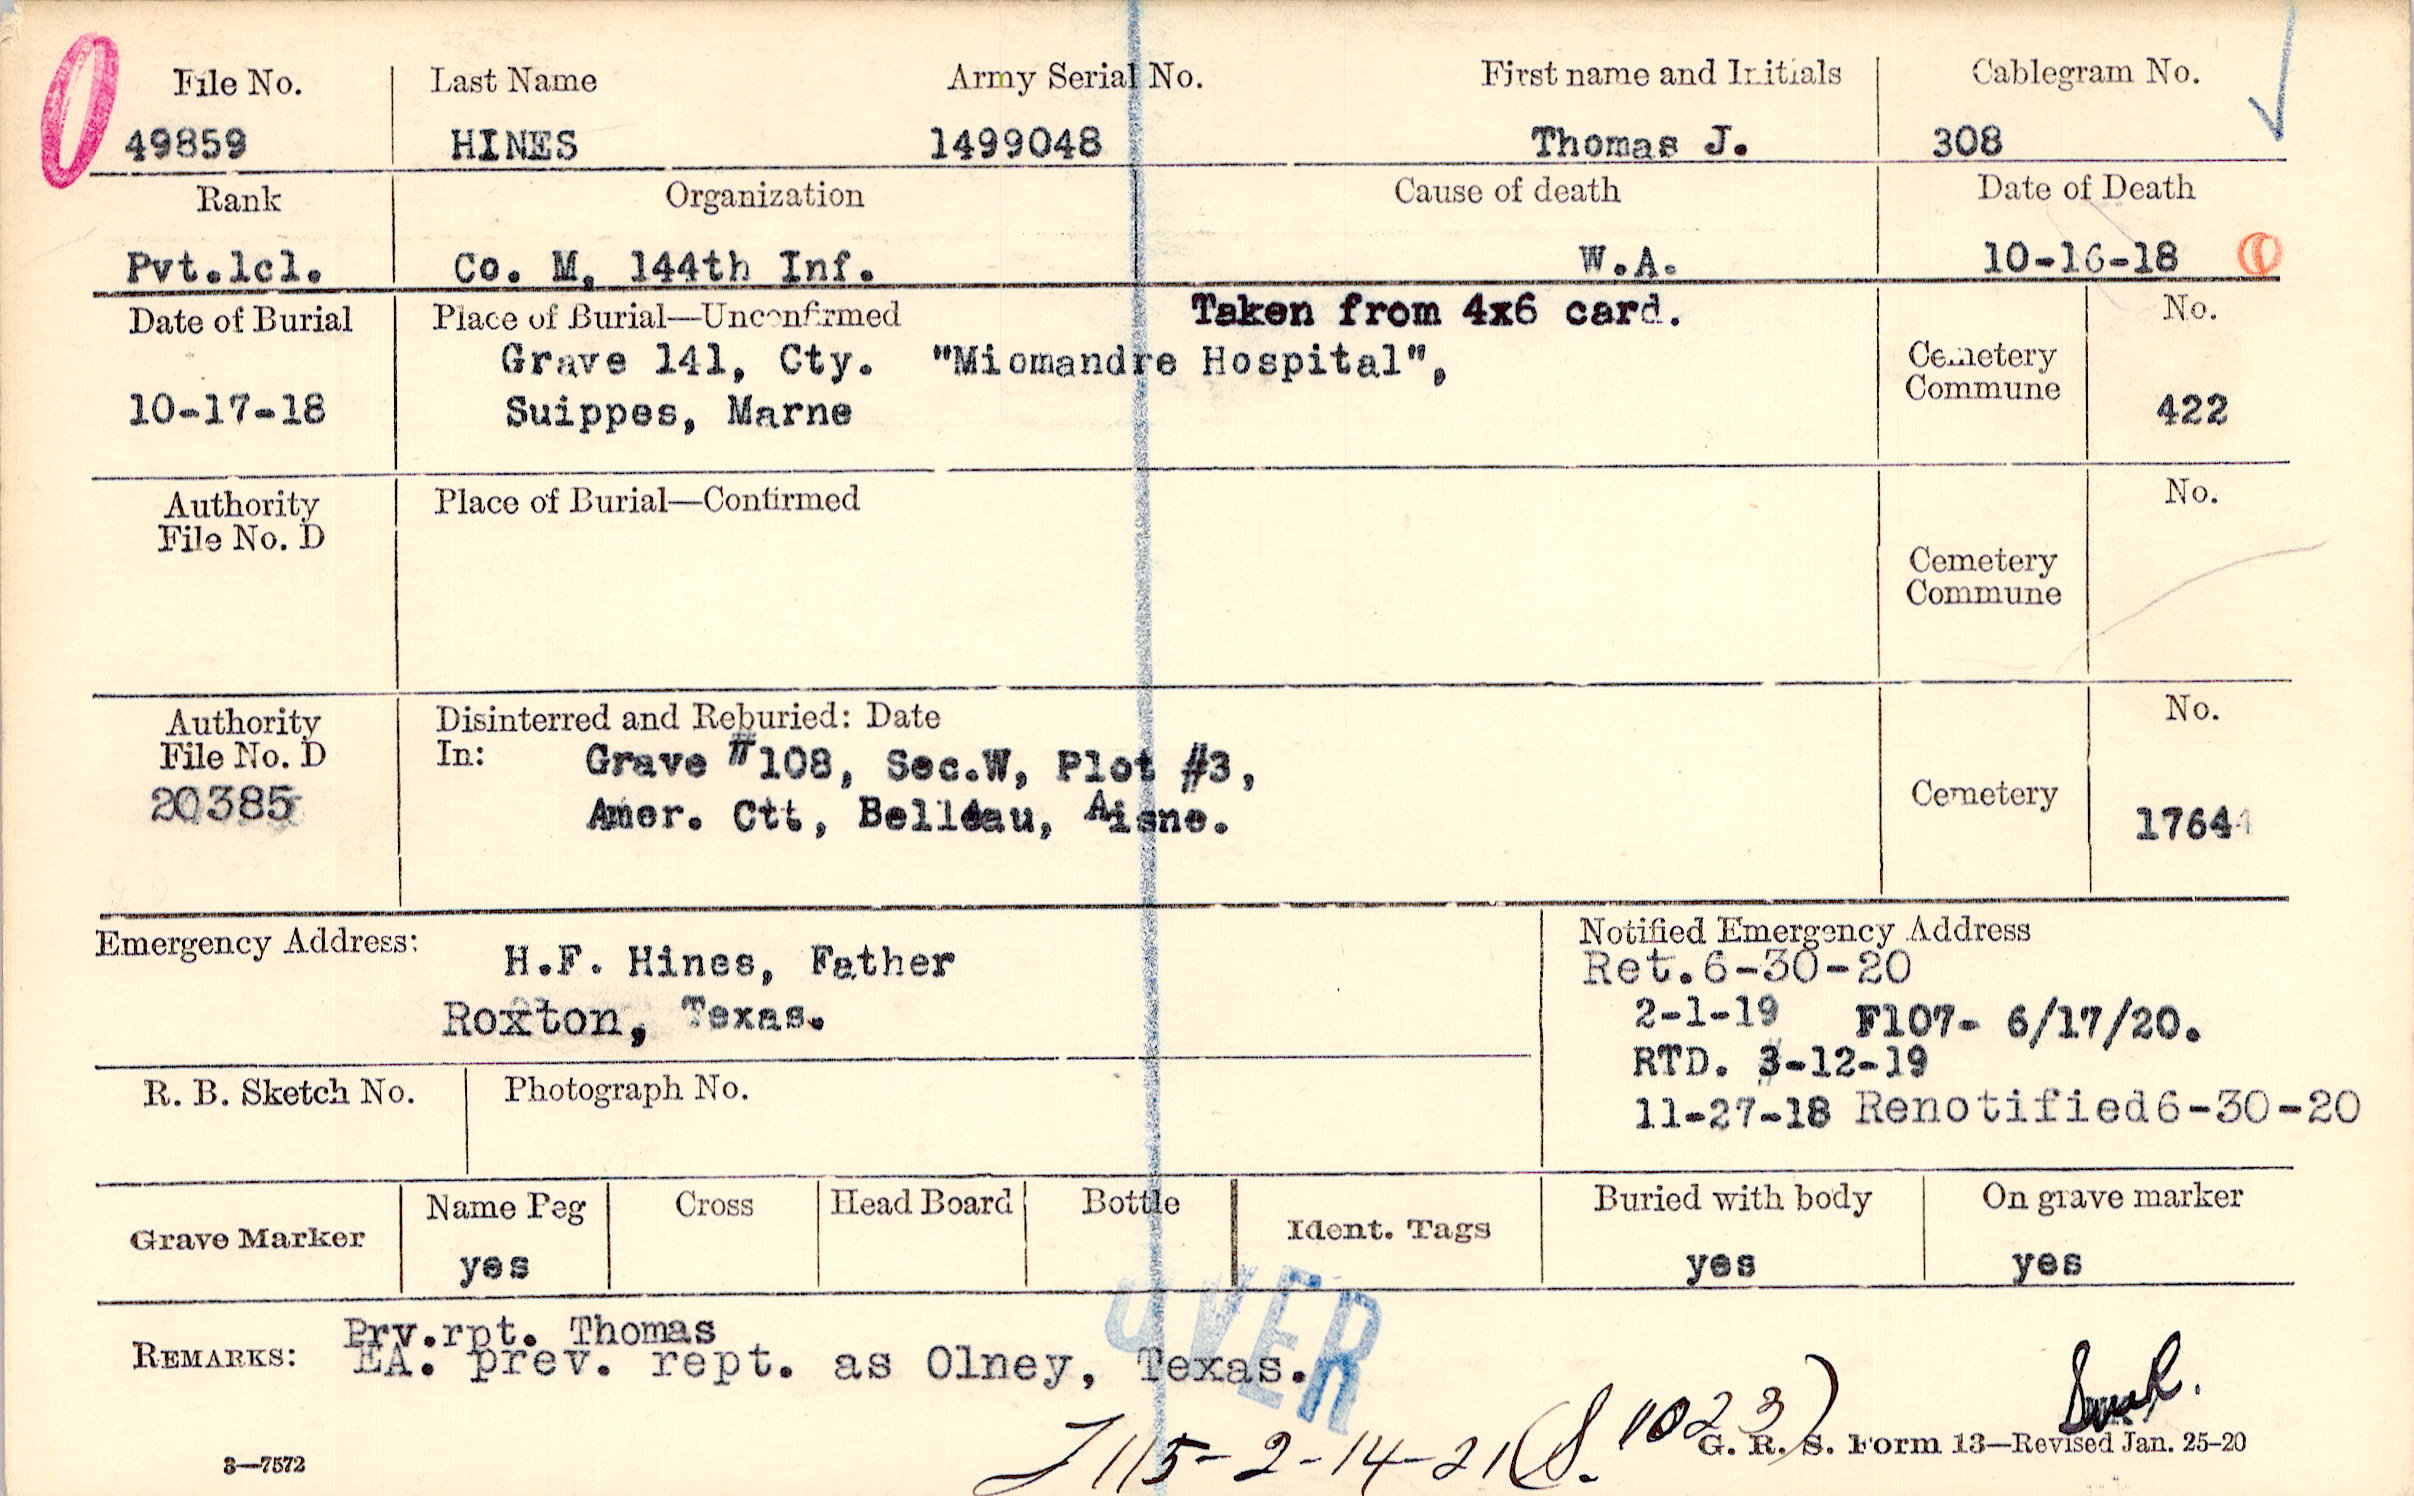 File No. Last Name Army Serial No. First name and Initials Cablegram No.
49859 HINES 1499048 Thomas J. 308
Rank Organization Cause of death Date of Death
Pvt.1cl. Co. M, 144th Inf. W.A. 10-16-18
Date of Burial Place of Burial—Unconfirmed Taken from 4x6 card. No.
Grave 141, Cty. "Miomandre Hospital", Cemetery
Commune
10-17-18 Suippes, Marne 422
Authority Place of Burial—Confirmed No.
File No. D
Cemetery
Commune
Authority Disinterred and Reburied: Date No.
File No. D In: Grave #108, Sec.W, Plot #3,
20385 Amer. Ctt, Belleau, Aisne. Cemetery 1764
Emergency Address: Notified Emergency Address
H.F. Hines, Father Ret.6-30-20
Roxton, Texas. 2-1-19 F107- 6/17/20.
RTD. 3-12-19
R. B. Sketch No. Photograph No. 11-27-18 Renotified6-30-20
Grave Marker Name Peg Cross Head Board Bottle Ident. Tags Buried with body On grave marker
yes yes yes
OVER
Prv.rpt. Thomas
REMARKS: EA. prev. rept. as Olney, Texas.
115-2-14-21 (S. 1023)
3—7572 G. R. S. Form 13—Revised Jan. 25-20